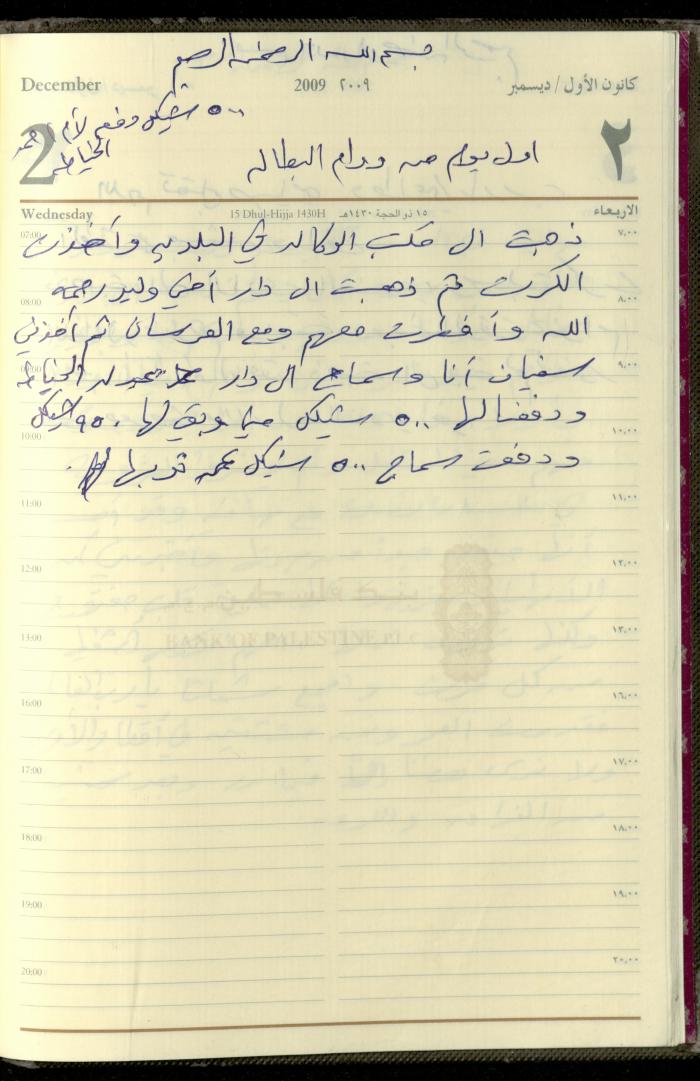 بسم الله الرحمن الرحيم
December 2009 ٢٠٠٩ كانون الأول / ديسمبر
٥٠٠ شيكل دفع لأم احمد
الخياطه
2 اول يوم من دوام البطاله ٢
Wednesday 15 Dhul-Hijja 1430H ١٥ ذو الحجة ١٤٣٠هـ الاربعاء
07:00 ٧,٠٠
ذهبت الى مكتب الوكاله في البلديه وأخذت
الكرت ثم ذهبت الى دار أخي وليد رحمه
08:00 ٨,٠٠
الله وأفطرت معهم ومع العرسان ثم أخذني
09:00 ٩,٠٠
سفيان أنا وسماح الى دار الخياطه
ودفعنالها ٥٠٠ شيكل مني وبقي لها ٩٥٠ شيكل
10:00 ١٠,٠٠
ودفعت سماح ٥٠٠ شيكل عن ثوبها
11:00 ١١,٠٠
12:00 ١٢,٠٠
بنك فلسطين
BANK OF PALESTINE PLC
13:00 ١٣,٠٠
16:00 ١٦,٠٠
17:00 ١٧,٠٠
18:00 ١٨,٠٠
19:00 ١٩,٠٠
20:00 ٢٠,٠٠